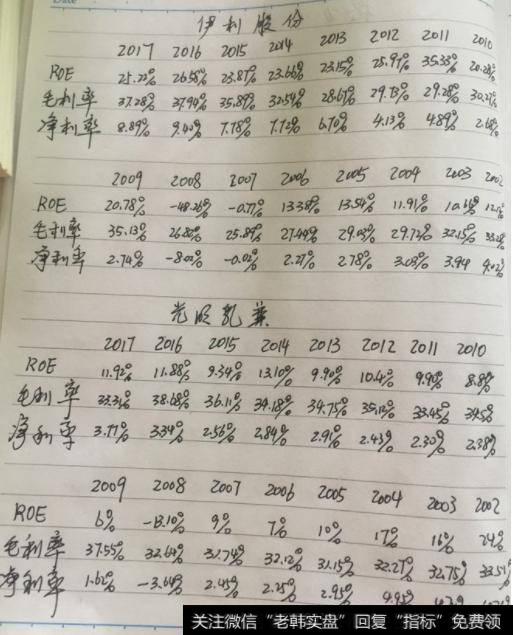 Date
伊利股份
2017 2016 2015 2014 2013 2012 2011 2010
ROE 25.22% 26.58% 23.87% 23.66% 23.15% 25.97% 35.33% 20.28%
毛利率 37.28% 37.94% 35.89% 32.54% 28.67% 29.73% 29.28% 30.27%
净利率 8.89% 9.40% 7.78% 7.72% 6.70% 4.13% 4.89% 2.68%
2009 2008 2007 2006 2005 2004 2003 2002
ROE 20.78% -0.77% 13.38% 13.54% 11.91%
毛利率 35.13% 26.80% 25.89% 27.44% 29.03% 29.72% 32.15%
净利率 2.74% -8.02% -0.02% 2.27% 2.78% 3.03% 3.94 4.02%
光明乳业
2017 2016 2015 2014 2013 2012 2011 2010
ROE 11.92% 11.88% 9.34% 13.10% 9.90% 10.4% 9.90% 8.8%
毛利率 33.31% 38.68% 36.11% 34.18% 34.75% 35.12% 33.45% 34.5%
净利率 3.77% 3.34% 2.56% 2.84% 2.91% 2.43% 2.30% 2.38%
2009 2008 2007 2006 2005 2004 2003 2002
ROE 6% -13.10% 9% 7% 10% 17% 16% 24%
毛利率 37.55% 32.64% 31.74% 32.12% 31.15% 32.27% 32.75% 33.51%
净利率 1.62% -3.64% 2.45% 2.25% 2.95% 4.95%
关注微信"老韩实盘"回复"指标"免费领